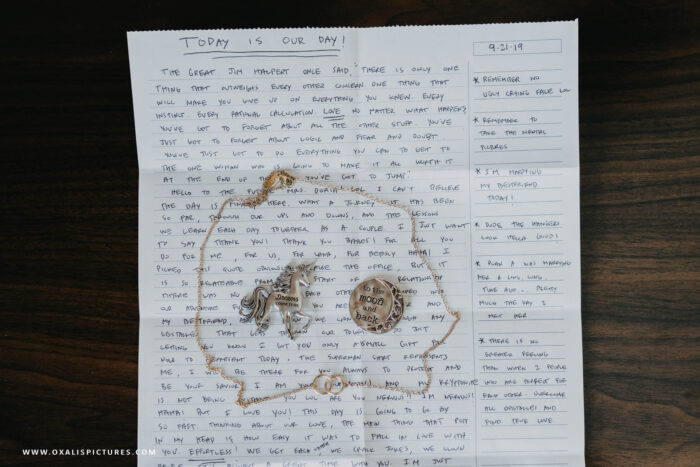 TODAY IS OUR DAY!
THE GREAT JIM HALPERT ONCE SAID, "THERE IS ONLY ONE
THING THAT OUTWEIGHS EVERY OTHER CONCERN. ONE THING THAT
WILL MAKE YOU GIVE UP ON EVERYTHING YOU KNEW. EVERY
INSTINCT. EVERY RATIONAL CALCULATION. LOVE NO MATTER WHAT HAPPENS
YOU'VE GOT TO FORGET ABOUT ALL THE OTHER STUFF. YOU'VE
JUST GOT TO FORGET ABOUT LOGIC AND FEAR AND DOUBT
YOU'VE JUST GOT TO DO EVERYTHING YOU CAN TO GET TO
THE ONE WOMAN WHO IS GOING TO MAKE IT ALL WORTH IT
AT THE END OF THE YOU'VE GOT TO JUMP.
HELLO TO THE MRS. LOL I CAN'T BELIEVE
THE DAY IS HERE, WHAT A JOURNEY IT HAS BEEN
SO FAR, THROUGH OUR UPS AND DOWNS, AND THE LESSONS
WE LEARN EACH DAY TOGETHER AS A COUPLE. I JUST WANT
TO SAY THANK YOU! THANK YOU BABES! FOR ALL YOU
DO FOR ME, FOR US, FOR FOR HAHA! I
PICKED THIS QUOTE THE OFFICE. BUT IT
IS SO RELATEABLE FROM START OF RELATIONSHIP
THERE WAS NO EACH OTHER INTO
OUR ADVENTURE YOU ARE AND
MY BESTFRIEND, WE CAN ANY
OBSTACLE THAT OUR JUST
LETTING YOU KNOW I GOT YOU ONLY A SMALL GIFT FOR
YOU TO TODAY. THE SUPERMAN SHIRT REPRESENTS
ME, I WILL BE THERE FOR YOU ALWAYS TO PROTECT AND
BE YOUR SAVIOR. I AM AND MY KRYPTONITE
IS NOT BEING LOL ARE YOU NERVOUS? I'M NERVOUS!
HAHA! BUT I LOVE YOU! THIS DAY IS GOING TO GO BY
SO FAST. THINKING ABOUT OUR LOVE, THE MAIN THING THAT POPS
IN MY HEAD IS HOW EASY IT WAS TO FALL IN LOVE WITH
YOU. EFFORTLESS! WE GET EACH OTHER, WE CRACK JOKES, WE
A GREAT TIME WITH YOU. I'M JUST
dreams
to the
moon
and
back
9-21-19
* REMEMBER NO
UGLY CRYING FACE LOL
* REMEMBER TO
TAKE THE MENTAL
PICTURES
* I'M MARRYING
MY BESTFRIEND
TODAY!
* DUDE THE HANGERS
LOOK HELLA GOOD!
* PLAN A WAS MARRYING
HER A LONG, LONG
TIME AGO... PRETTY
MUCH THE DAY I
MET HER
* THERE IS NO
GREATER FEELING
THAN WHEN 2 PEOPLE
WHO ARE PERFECT FOR
EACH OTHER OVERCOME
ALL OBSTACLES AND
FIND TRUE LOVE.
WWW.OXALISPICTURES.COM